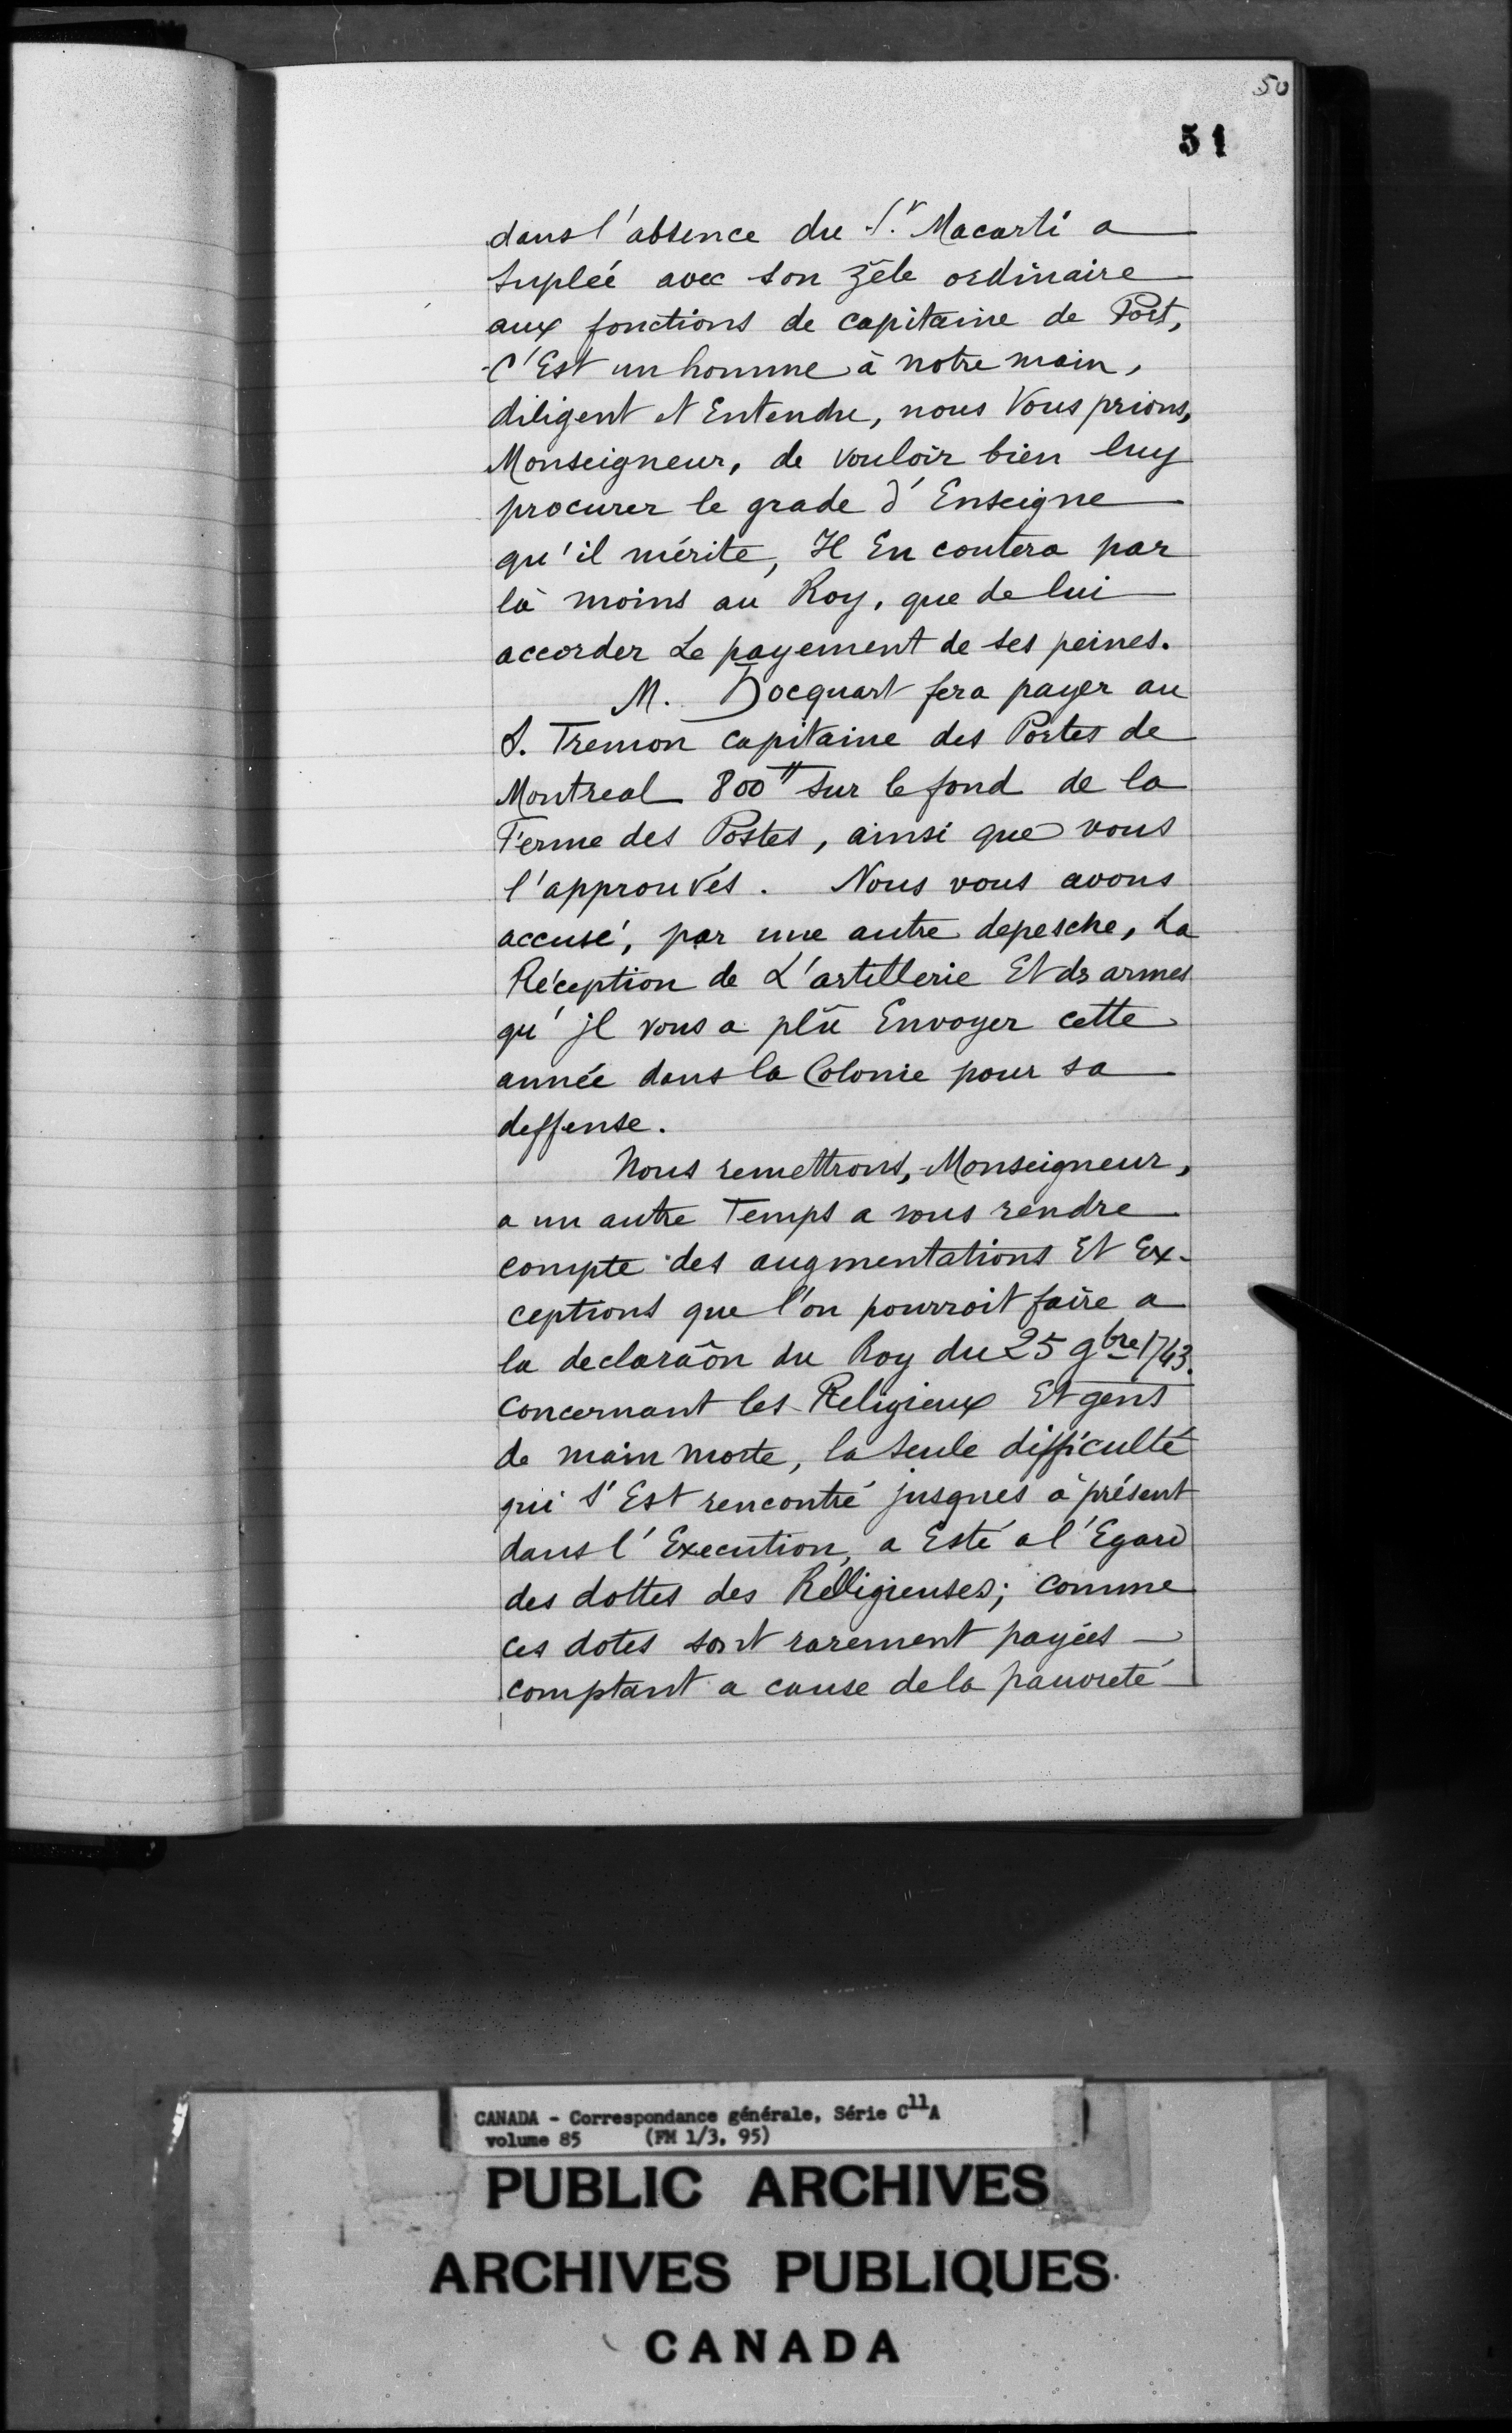 50
51
dans l'absence du S.r Macarti a
supleé avec son zêle ordinaire
aux fonctions de capitaine de Port,
C'Est un homme à notre main,
diligent et Entendu, nous Vous prions,
Monseigneur, de vouloir bien luy
procurer le grade d'Enseigne
qu'il mérite, Il En coutera par
là moins au Roy, que de lui
accorder Le payement de ses peines.
M. Hocquart fera payer au
S. Tremon capitaine des Portes de
Montreal 800tt sur le fond de la
Ferme des Postes, ainsi que vous
l'approuvés. Nous vous avons
accusé, par une autre depesche, La
Réception de L'artillerie Et ds armes
qu'jl vous a plû Envoyer cette
année dans la Colonie pour sa
deffense.
Nous remettrons, Monseigneur,
a un autre Temps a vous rendre
compte des augmentations Et Ex-
ceptions que l'on pourroit faire a
la declaraôn du Roy du 25 9bre 1743.
concernant les Religieux Et gens
de main morte, la seule difficulté
qui s'Est rencontré jusques à présent
dans l'Execution, a Esté a l'Egard
des dottes des Relligieuses; comme
ces dotes sont rarement payées
comptant a cause de la pauvreté
CANADA - Correspondance générale, Série C11A
volume 85 (FM 1/3, 95)
PUBLIC ARCHIVES
ARCHIVES PUBLIQUES
CANADA